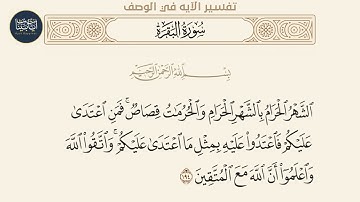 تفسير الآيه في الوصف
سُورَةُ البَقَرَةِ
بِسْمِ اللَّهِ الرَّحْمَٰنِ الرَّحِيمِ
الشَّهْرُ الْحَرَامُ بِالشَّهْرِ الْحَرَامِ وَالْحُرُمَاتُ قِصَاصٌ ۚ فَمَنِ اعْتَدَىٰ
عَلَيْكُمْ فَاعْتَدُوا عَلَيْهِ بِمِثْلِ مَا اعْتَدَىٰ عَلَيْكُمْ ۚ وَاتَّقُوا اللَّهَ
وَاعْلَمُوا أَنَّ اللَّهَ مَعَ الْمُتَّقِينَ ١٩٤